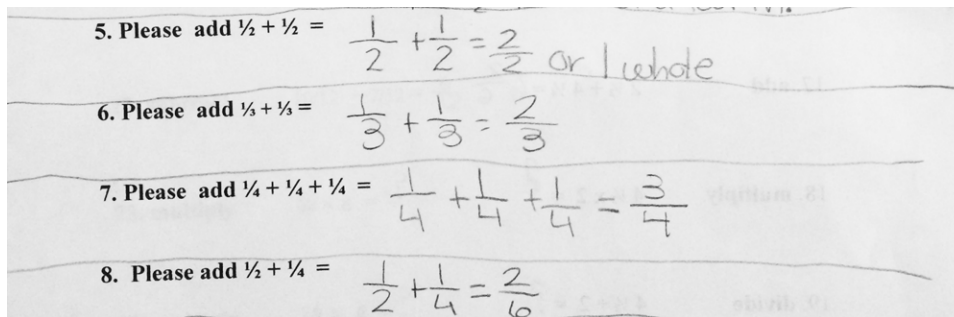 5. Please add ½ + ½ = 1/2 + 1/2 = 2/2 or 1 whole
6. Please add ⅓ + ⅓ = 1/3 + 1/3 = 2/3
7. Please add ¼ + ¼ + ¼ = 1/4 + 1/4 + 1/4 = 3/4
8. Please add ½ + ¼ = 1/2 + 1/4 = 2/6